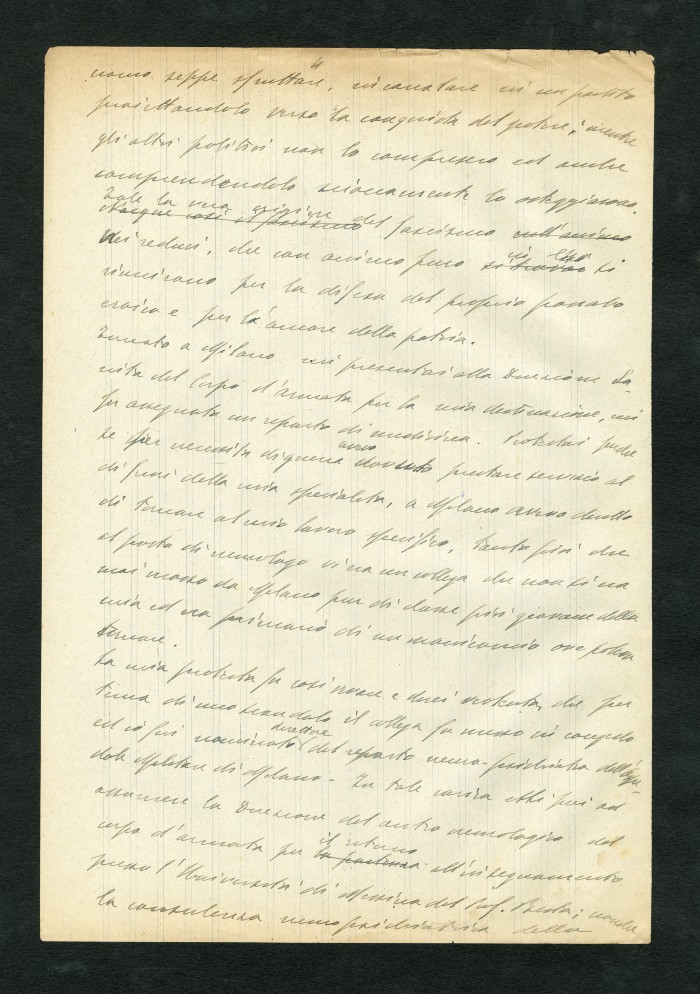 4
uomo seppe sfruttare, incanalare in un partito
proiettandolo verso la conquista del potere; mentre
gli altri politici non lo compresero ed anche
comprendendolo scioccamente lo osteggiarono.
Tale la vera origine del fascismo
Nacque così il fascismo nell'animo
dei reduci, che con animo puro si
riunirono per la difesa del proprio passato
eroico e per l'amore della patria.
Tornato a Milano mi presentai alla Direzione Sa-
nità del Corpo d'armata per la mia destinazione, mi
fu assegnato un reparto di medicina. Protestai perché
se per necessità di guerra avevo dovuto prestare servizio al
di fuori della mia specialità, a Milano avevo diritto
di tornare al mio lavoro specifico. Tanto più che
al posto di neurologo vi era un collega che non si era
mai mosso da Milano pur di classe più giovane della
mia ed era primario di un manicomio ove poteva
tornare.
La mia protesta fu così vivace e direi violenta, che per
tema di uno scandalo il collega fu messo in congedo
ed io fui nominato direttore del reparto neuro-psichiatrico dell'Ospe-
dale Militare di Milano - In tale carica ebbi poi ad
assumere la Direzione del centro neurologico del
corpo d'armata per il ritorno
la partenza all'insegnamento
presso l'Università di Messina del Prof. Beda; nonché
la consulenza neuropsichiatrica della